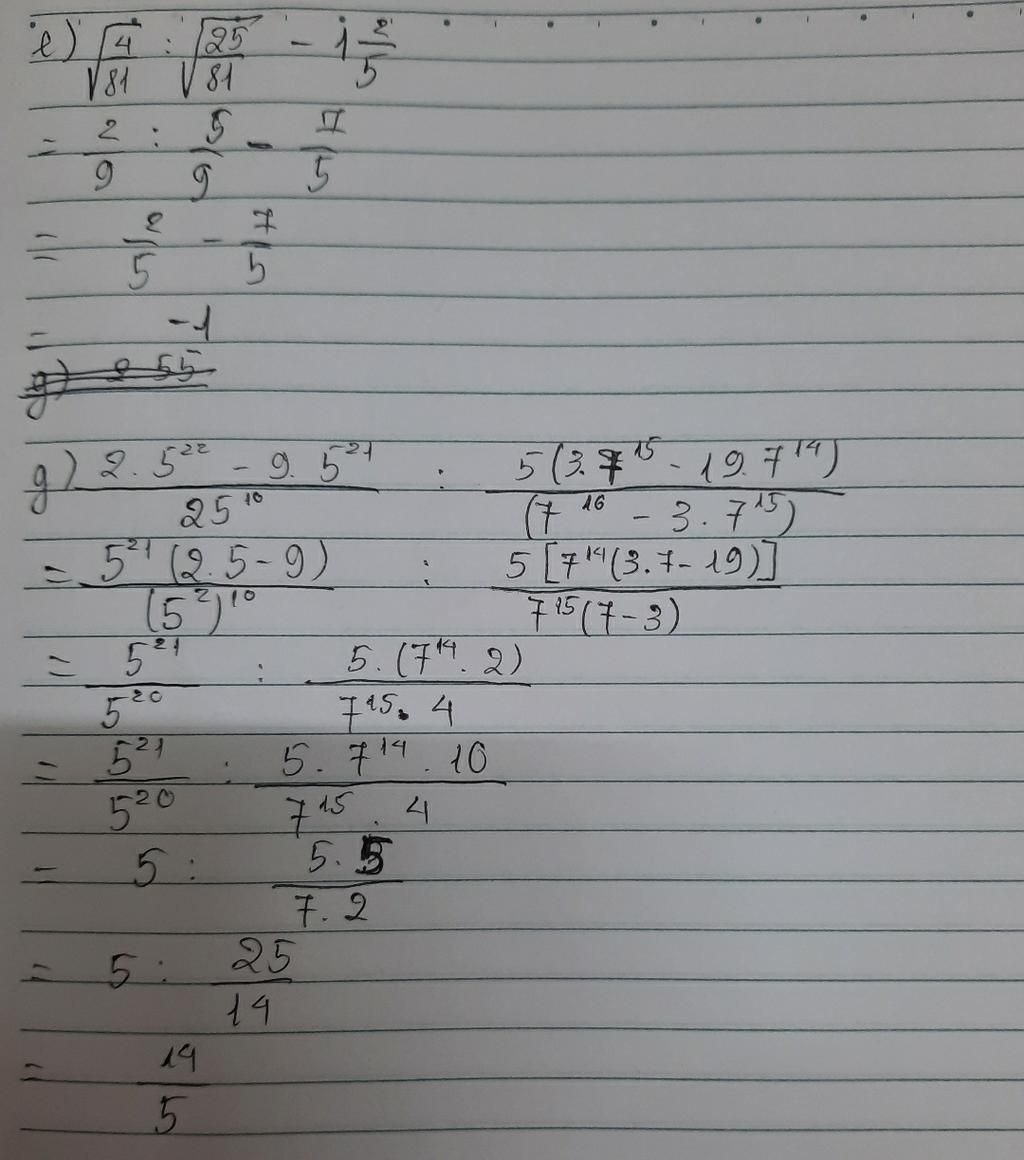 e) √(4/81) : √(25/81) - 1 2/5
= 2/9 : 5/9 - 7/5
= 2/5 - 7/5
= -1
g) 2 55
g) (2.5²² - 9.5²¹)/25¹⁰ : 5(3.7¹⁵ - 19.7¹⁴)/(7¹⁶ - 3.7¹⁵)
= 5²¹(2.5-9)/(5²)¹⁰ : 5[7¹⁴(3.7-19)]/7¹⁵(7-3)
= 5²¹/5²⁰ : 5.(7¹⁴.2)/7¹⁵.4
= 5²¹/5²⁰ : 5.7¹⁴.10/7¹⁵.4
= 5 : 5.5/7.2
= 5 : 25/14
= 14/5